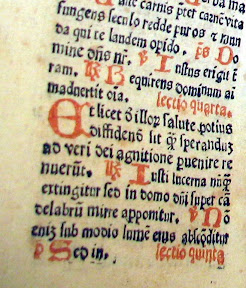 te carnis pret
fungens seculo redde puros ⁊ mun
da qui te landem opido. ps Do
mine dn̄s nr̄. ps Iustus erigit t
ram. rx Requirens dominum ai
maduertit oīa. lectio quarta.
Et licet ō illoꝝ salute potius
diffidens sit qͥ sperandū
ad veri dei agnitione puenire re
nuerūt. rx Iusti lucerna nūqͥ
extingitur sed in domo dn̄i super cā
delabrū mire apponitur. ps Nō
enim sub modio lumē eius abscōditur
ps Sed in. lectio quinta